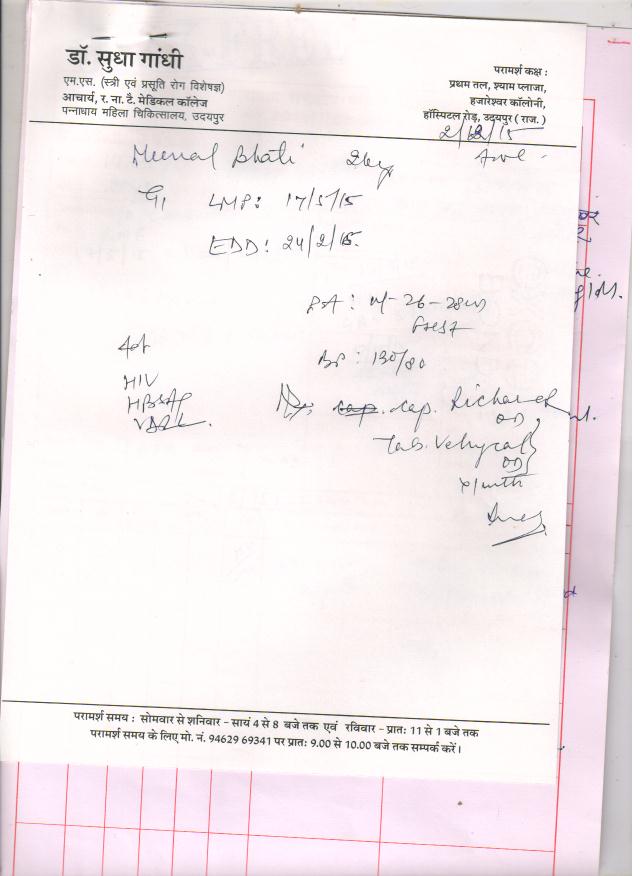 डॉ. सुधा गांधी
एम.एस. (स्त्री एवं प्रसूति रोग विशेषज्ञ)
आचार्य, र. ना. टै. मेडिकल कॉलेज
पन्नाधाय महिला चिकित्सालय, उदयपुर
परामर्श कक्ष :
प्रथम तल, श्याम प्लाजा,
हजारेश्वर कॉलोनी,
हॉस्पिटल रोड़, उदयपुर ( राज. )
2/12/15
Meenal Bhati 26y
G1 LMP: 17/5/15
EDD: 24/2/16.
P/A: 26-28w
BP: 130/80
HIV
HBSAg
VDRL
cap.
OD
Tab.
OD
परामर्श समय : सोमवार से शनिवार - सायं 4 से 8 बजे तक एवं रविवार - प्रात: 11 से 1 बजे तक
परामर्श समय के लिए मो. नं. 94629 69341 पर प्रात: 9.00 से 10.00 बजे तक सम्पर्क करें।